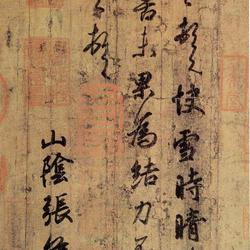 頓首快雪時晴
善未果為結力不
頓首
山陰張侯